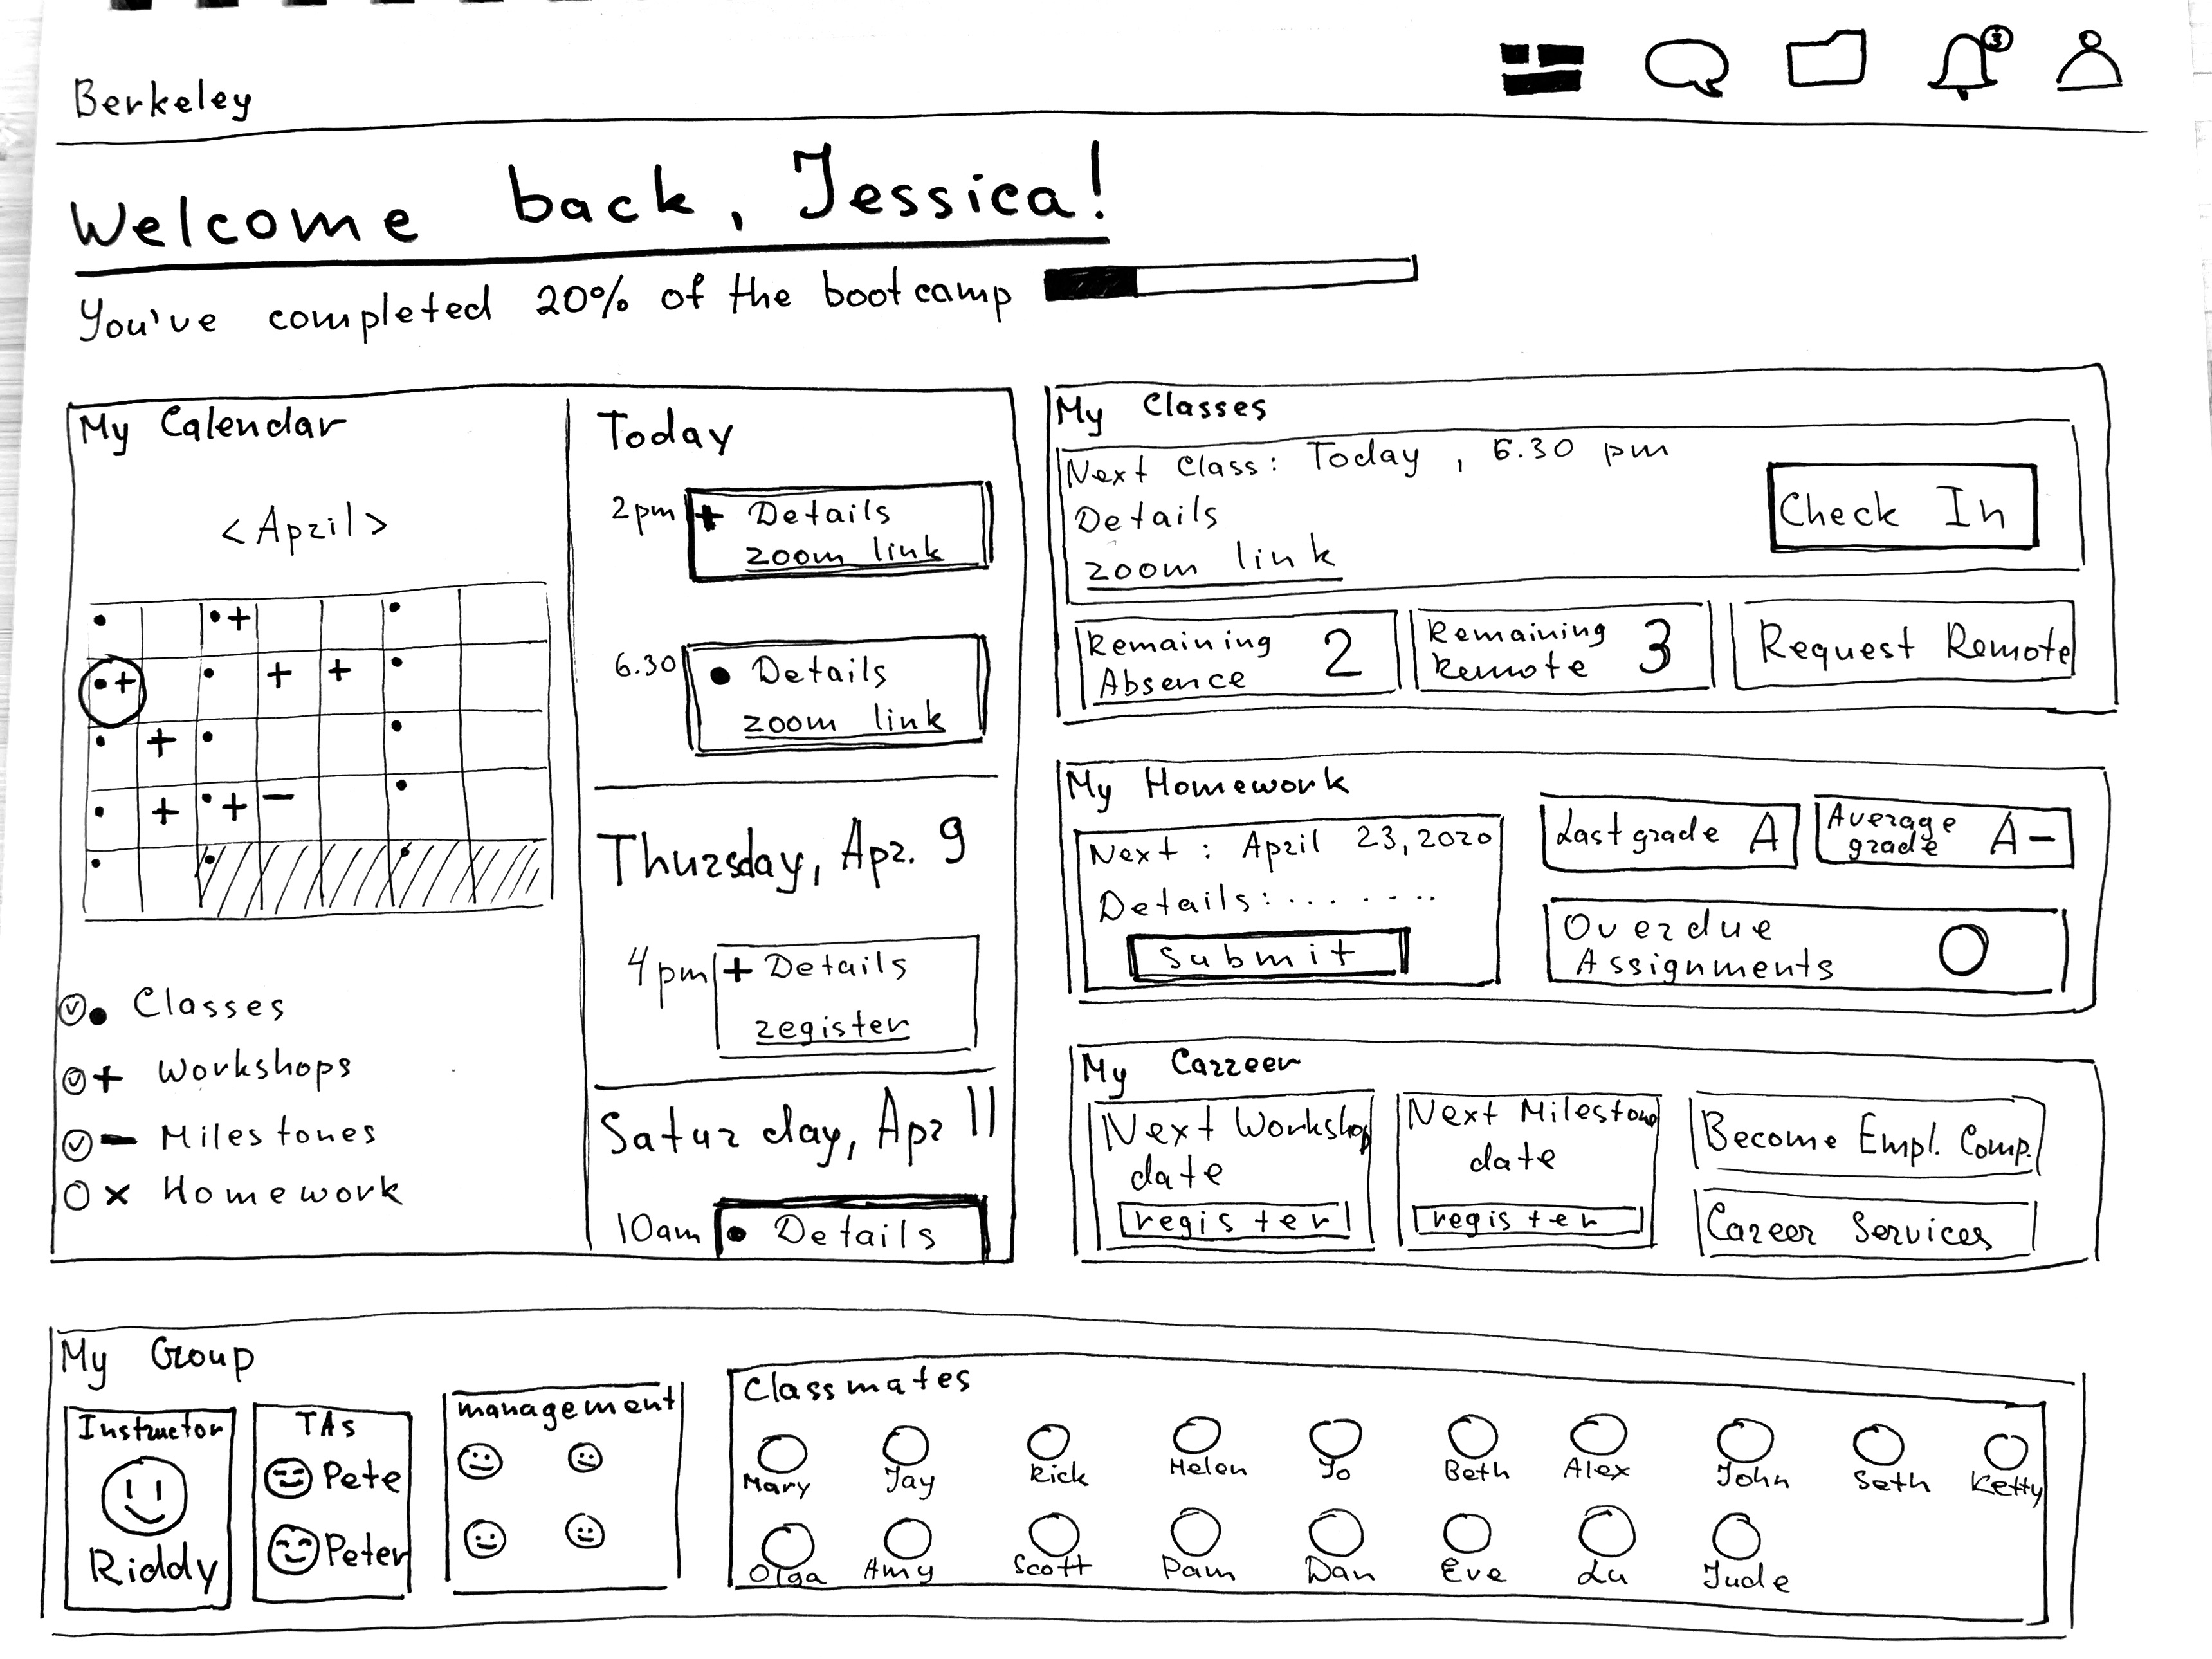 3
Berkeley
Welcome back, Jessica!
You've completed 20% of the bootcamp
My Calendar
< April >
+
+
+
+
+
+
+
-
• Classes
+ Workshops
- Milestones
x Homework
Today
2pm + Details
zoom link
6.30 • Details
zoom link
Thursday, Apr. 9
4pm + Details
register
Saturday, Apr 11
10am • Details
My Classes
Next Class: Today, 6.30 pm
Details
zoom link
Check In
Remaining 2
Absence
Remaining 3
Remote
Request Remote
My Homework
Next : April 23, 2020
Details: ........
Submit
Last grade A
Average A-
grade
Overdue 0
Assignments
My Carreer
Next Workshop
date
register
Next Milestone
date
register
Become Empl. Comp.
Career Services
My Group
Instructor
Riddy
TAs
Pete
Peter
management
Classmates
Mary Jay Rick Helen Jo Beth Alex John Seth Ketty
Olga Amy Scott Pam Dan Eve Lu Jude